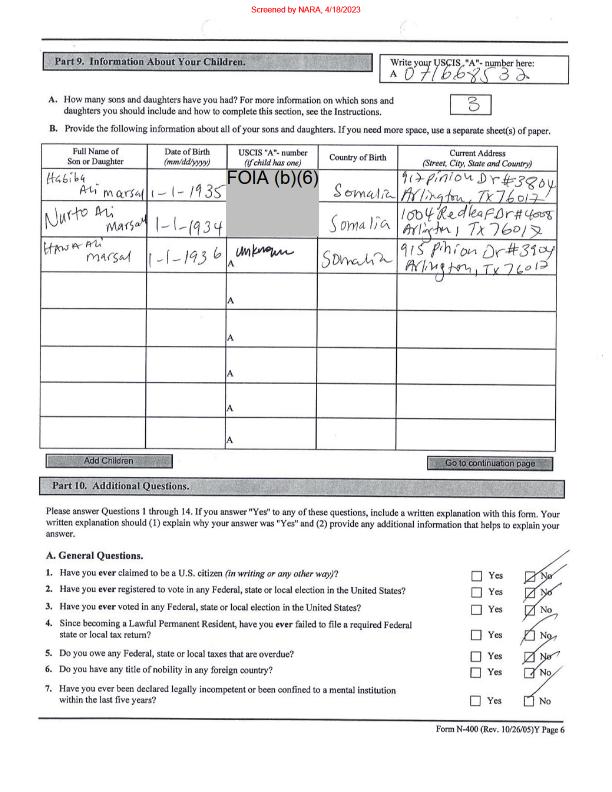 Screened by NARA, 4/18/2023
Part 9. Information About Your Children.
Write your USCIS "A"- number here:
A 071668532
A. How many sons and daughters have you had? For more information on which sons and
daughters you should include and how to complete this section, see the Instructions.
3
B. Provide the following information about all of your sons and daughters. If you need more space, use a separate sheet(s) of paper.
Full Name of
Son or Daughter
Date of Birth
(mm/dd/yyyy)
USCIS "A"- number
(if child has one)
Country of Birth
Current Address
(Street, City, State and Country)
Habiba
Ali marsal
1-1-1935
FOIA (b)(6)
Somalia
917 pinion Dr #3804
Arlington, TX 76017
Nurto Ali
Marsal
1-1-1934
Somalia
1004 Redleaf Dr #4008
Arlington, TX 76017
HAWA ALi
marsal
1-1-1936
unknown
A
Somalia
915 Pinion Dr #3904
Arlington, Tx 76017
A
A
A
A
A
Add Children
Go to continuation page
Part 10. Additional Questions.
Please answer Questions 1 through 14. If you answer "Yes" to any of these questions, include a written explanation with this form. Your
written explanation should (1) explain why your answer was "Yes" and (2) provide any additional information that helps to explain your
answer.
A. General Questions.
1. Have you ever claimed to be a U.S. citizen (in writing or any other way)?
Yes No
2. Have you ever registered to vote in any Federal, state or local election in the United States?
Yes No
3. Have you ever voted in any Federal, state or local election in the United States?
Yes No
4. Since becoming a Lawful Permanent Resident, have you ever failed to file a required Federal
state or local tax return?
Yes No
5. Do you owe any Federal, state or local taxes that are overdue?
Yes No
6. Do you have any title of nobility in any foreign country?
Yes No
7. Have you ever been declared legally incompetent or been confined to a mental institution
within the last five years?
Yes No
Form N-400 (Rev. 10/26/05)Y Page 6